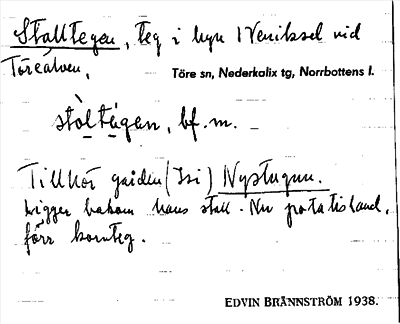 Stalltegen, teg i byn Veniksel vid
Töreälven,
Töre sn, Nederkalix tg, Norrbottens l.
stòltégan, bf. m.
Tillhör gården (Isi) Nystugun.
Ligger bakom hans stall. Nu potatisland,
förr kornteg.
EDVIN BRÄNNSTRÖM 1938.